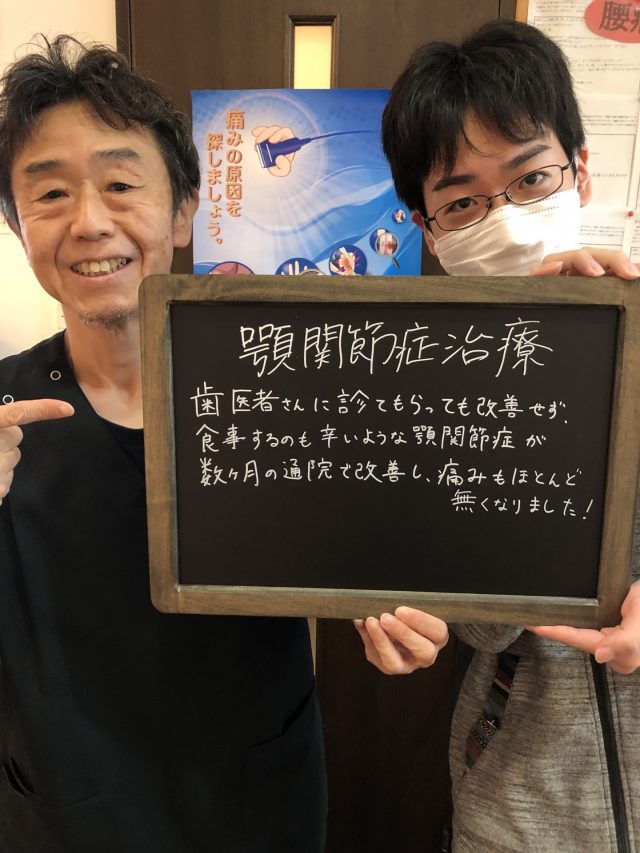 痛みの原因を
探しましょう。
腰痛
顎関節症治療
歯医者さんに診てもらっても改善せず、
食事するのも辛いような顎関節症が
数ヶ月の通院で改善し、痛みもほとんど
無くなりました!